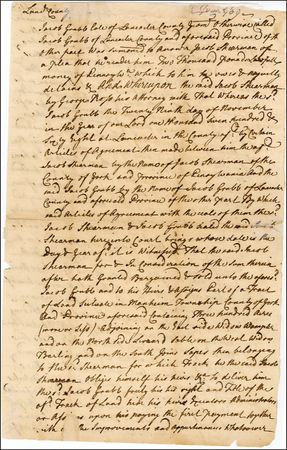 Lanc. County
Jacob Grubb late of Lancaster County Yeoman otherwise called
Jacob Grubb of Lancaster County and aforesaid Province of the
other part Was Summoned to answer Jacob Sherman of
a Plea that he render him Two Thousand Pounds lawfull
money of Pensylva. which to him he owes & unjustly
detains & And Whereupon the said Jacob Sherman
by George Ross his Attorney saith That Whereas the sd.
Jacob Grubb the Twenty Tenth day of November
in the Year of our Lord one Thousand Seven hundred &
Sixty Eight at Lancaster in the County aforesd. by Certain
Articles of Agreement then made between him the aforesd.
Jacob Sherman by the Name of Jacob Sherman of the
County of York and Province of Pensylvania and the
said Jacob Grubb by the Name of Jacob Grubb of Lancaster
County and aforesaid Province of the other Part By which
said Articles of Agreement with the seals of them the sd.
Jacob Sherman & Jacob Grubb Sealed the said
Sherman here into Court brings whose date is the
Day & Year aforesd. It is Witnessed That the said Jacob
Sherman for & In Consideration of the Sum herein
after hath Granted Bargained & Sold unto the aforesd.
Jacob Grubb and to his Heirs & Assigns Part of a Tract
of Land Situate in Manheim Township County of York
and Province aforesaid Containing Three hundred Acres
(more or Less) Adjoining on the East side Widow
and on the North Edward on the West Widow
and on the South Joins belonging
to the sd. Sherman for which Tract the said Jacob
Sherman obliges himself his heirs &c. to deliver him
the sd. Jacob Grubb fully his right and Title of the
sd. Tract of Land him his heirs Executors Administrators
or Assigns upon his paying the first payment together
with the Improvements and Appurtenances Whatsoever